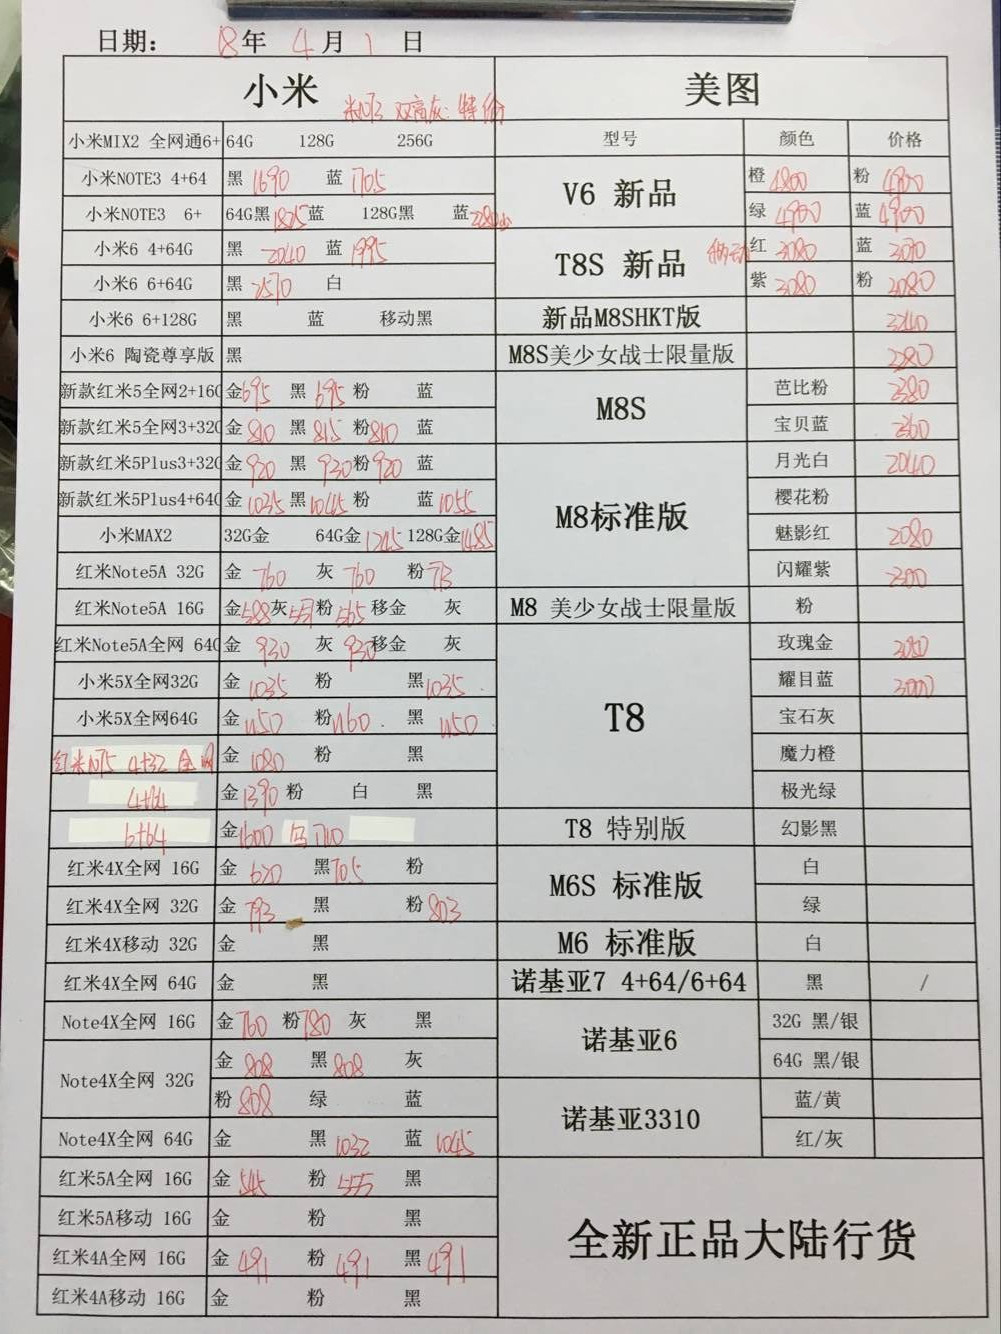 日期: 18年 4月 1 日
小米 美图
特价
小米MIX2 全网通6+ 64G 128G 256G 型号 颜色 价格
小米NOTE3 4+64 黑 1690 蓝 1705 V6 新品 橙 4800 粉 4900
小米NOTE3 6+ 64G黑 1825 蓝 128G黑 蓝 绿 4900 蓝 4900
小米6 4+64G 黑 2040 蓝 1995 T8S 新品 红 3080 蓝 3070
小米6 6+64G 黑 2570 白 紫 3080 粉 3080
小米6 6+128G 黑 蓝 移动黑 新品M8SHKT版
小米6 陶瓷尊享版 黑 M8S美少女战士限量版 2280
新款红米5全网2+16G 金 695 黑 695 粉 蓝 M8S 芭比粉 2380
新款红米5全网3+32G 金 810 黑 815 粉 810 蓝 宝贝蓝 2360
新款红米5Plus3+32G 金 920 黑 930 粉 920 蓝 M8标准版 月光白 2040
新款红米5Plus4+64G 金 1035 黑 1045 粉 蓝 1055 樱花粉
小米MAX2 32G金 64G金 1245 128G金 1485 魅影红 2080
红米Note5A 32G 金 760 灰 760 粉 闪耀紫
红米Note5A 16G 金 588 灰 粉 565 移金 灰 M8 美少女战士限量版 粉
红米Note5A全网 64G 金 930 灰 930 移金 灰 T8 玫瑰金
小米5X全网32G 金 1035 粉 黑 1035 耀目蓝 3000
小米5X全网64G 金 1150 粉 1160 黑 1150 宝石灰
红米N75 4+32 全网 金 1080 粉 黑 魔力橙
4+64 金 1390 粉 白 黑 极光绿
6+64 金 1600 1700 T8 特别版 幻影黑
红米4X全网 16G 金 620 黑 705 粉 M6S 标准版 白
红米4X全网 32G 金 793 黑 粉 803 绿
红米4X移动 32G 金 黑 M6 标准版 白
红米4X全网 64G 金 黑 诺基亚7 4+64/6+64 黑 /
Note4X全网 16G 金 760 粉 780 灰 黑 诺基亚6 32G 黑/银
Note4X全网 32G 金 808 黑 808 灰 64G 黑/银
粉 808 绿 蓝 诺基亚3310 蓝/黄
Note4X全网 64G 金 黑 1032 蓝 1045 红/灰
红米5A全网 16G 金 545 粉 555 黑 全新正品大陆行货
红米5A移动 16G 金 粉 黑
红米4A全网 16G 金 491 粉 491 黑 491
红米4A移动 16G 金 粉 黑